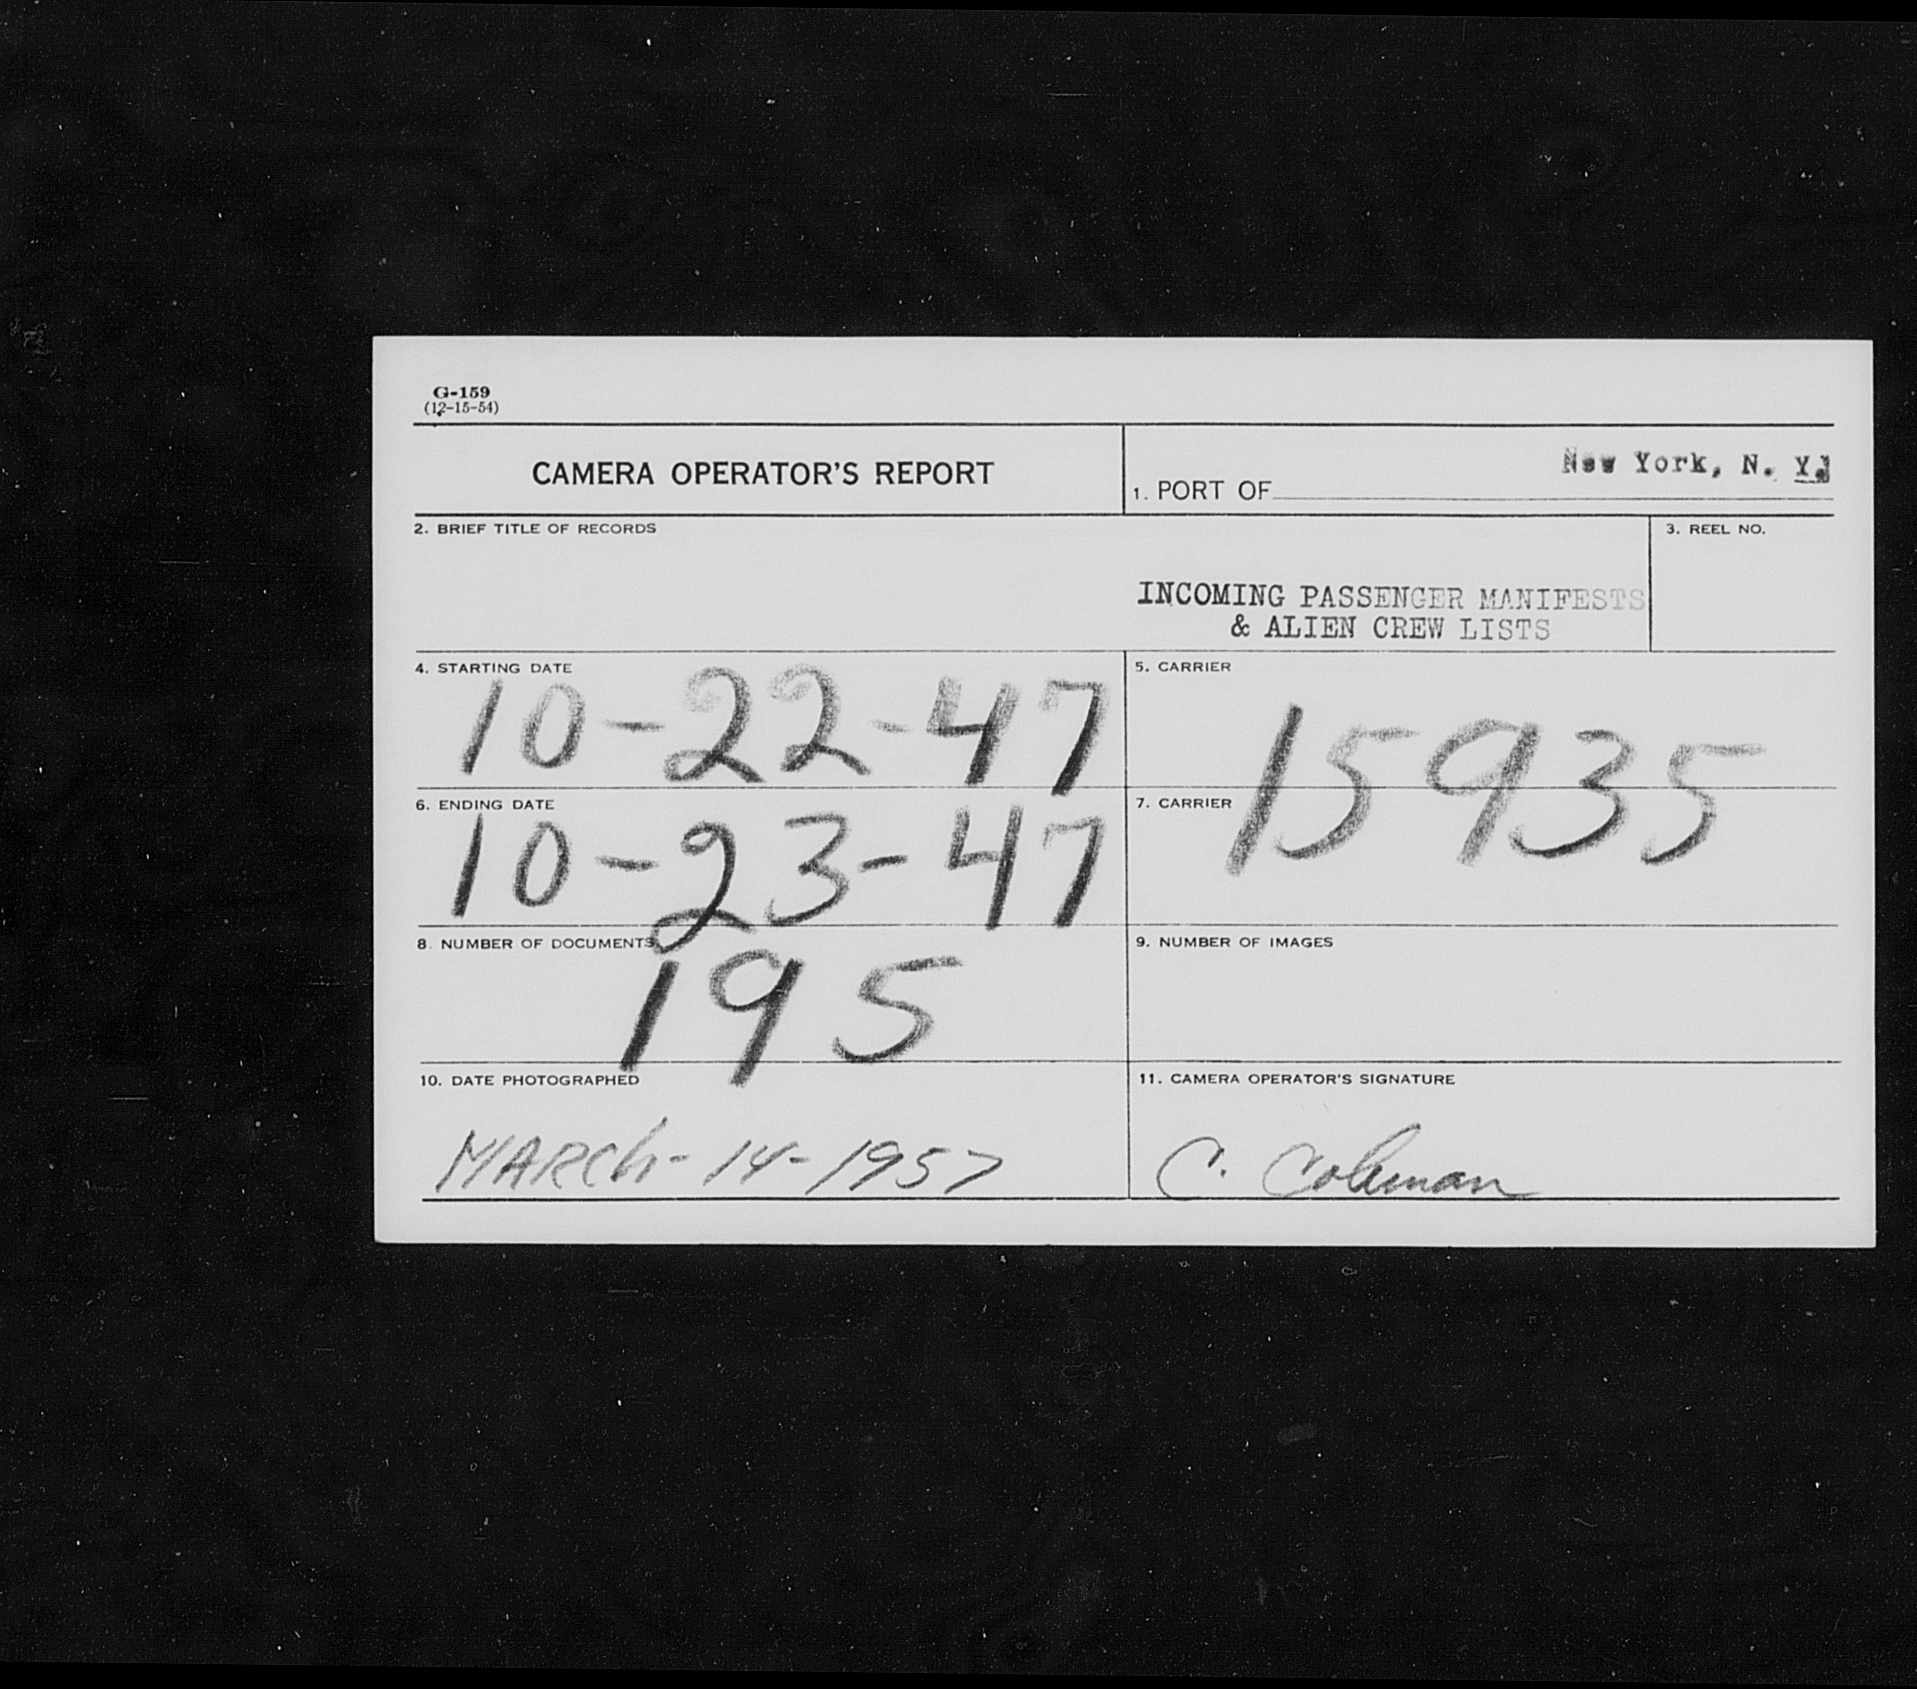 G-159
(12-15-54)
CAMERA OPERATOR'S REPORT
1. PORT OF New York, N. Y.
2. BRIEF TITLE OF RECORDS
INCOMING PASSENGER MANIFESTS
& ALIEN CREW LISTS
3. REEL NO.
4. STARTING DATE
10-22-47
5. CARRIER
15935
6. ENDING DATE
10-23-47
7. CARRIER
8. NUMBER OF DOCUMENTS
195
9. NUMBER OF IMAGES
10. DATE PHOTOGRAPHED
MARCh-14-1957
11. CAMERA OPERATOR'S SIGNATURE
C. Coleman